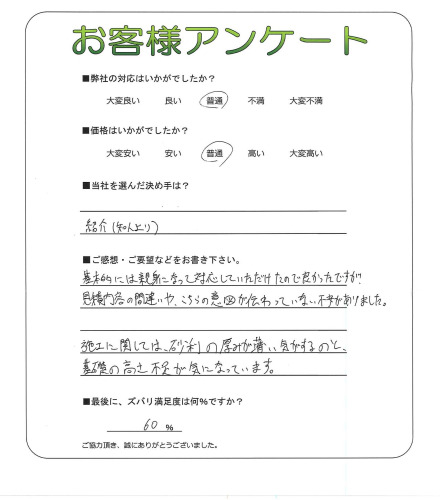 お客様アンケート
■弊社の対応はいかがでしたか？
大変良い 良い 普通 不満 大変不満
■価格はいかがでしたか？
大変安い 安い 普通 高い 大変高い
■当社を選んだ決め手は？
紹介(知人より)
■ご感想・ご要望などをお書き下さい。
基本的には親身になって対応していただけたので良かったですが、
見積内容の間違いや、こちらの意図が伝わっていない不安がありました。
施工に関しては、砂利の厚みが薄い気がするのと、
基礎の高さ不足が気になっています。
■最後に、ズバリ満足度は何%ですか？
60 %
ご協力頂き、誠にありがとうございました。